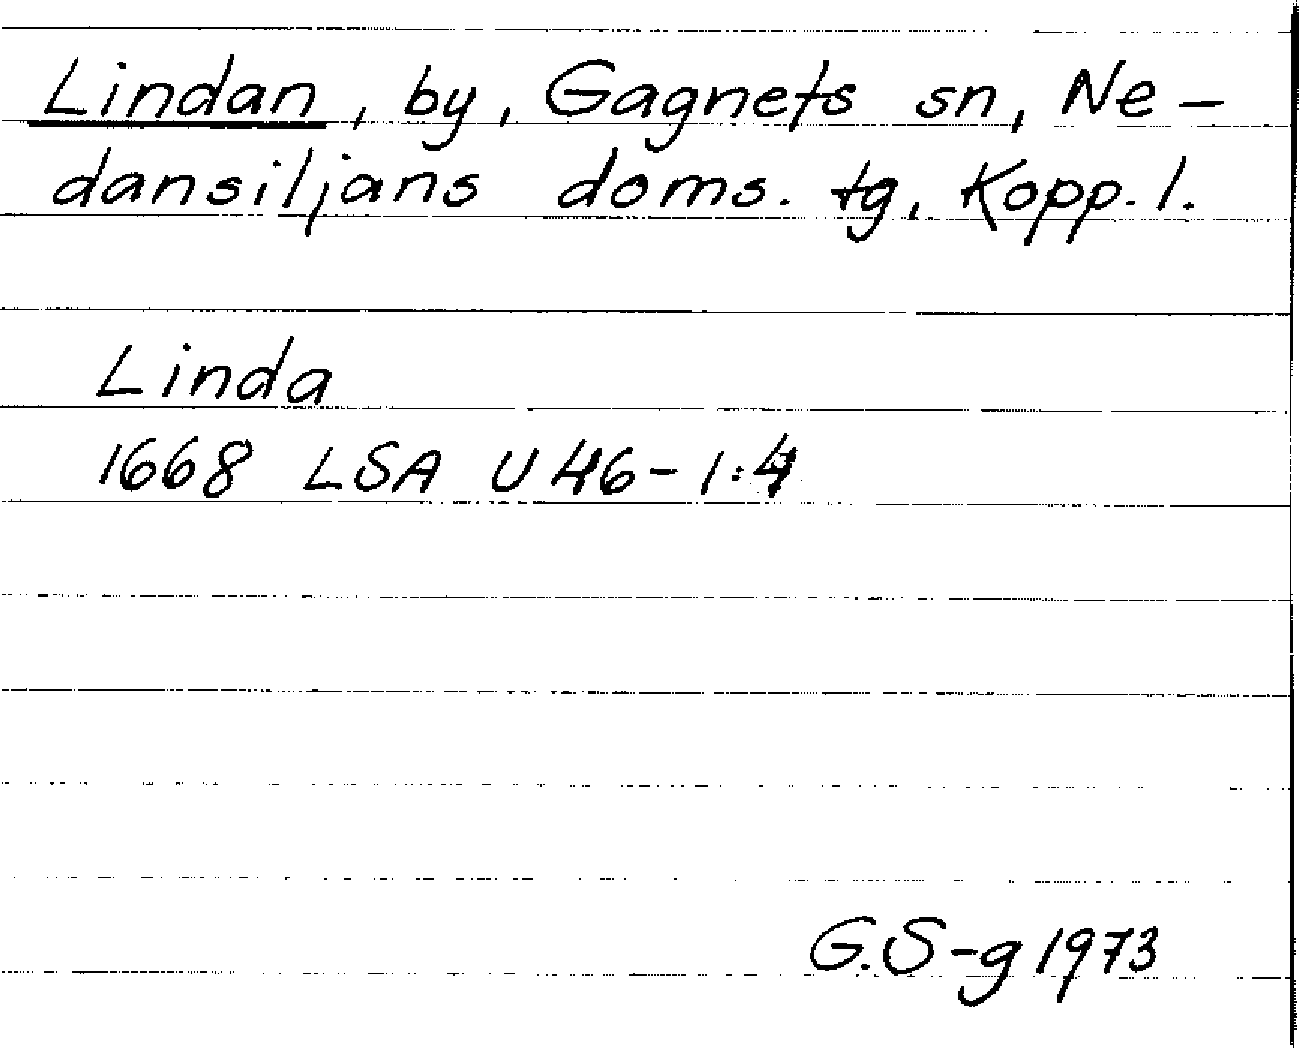 Lindan, by, Gagnefs sn, Ne-
dansiljans doms. tg, Kopp. l.
Linda
1668 LSA U 46-1:4
G.S-g 1973